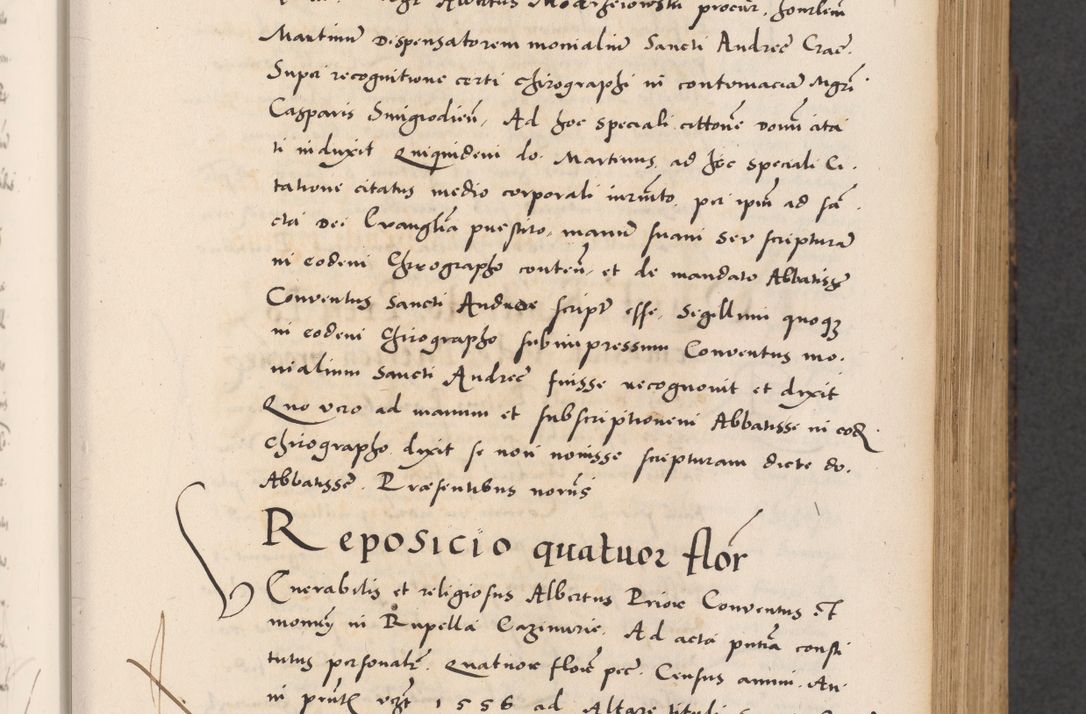 Albertus Modrzeiowski procur. honestum
Martinũ Dispensatorem monialiũ Sancti Andreę Crac.
Super recognitione certi Chirographi in contumaciã Mgri
Casparis Smigrodieñ, Ad hoc speciali cittõne Domi cita
ti induxit Quiquidem do. Martinus ad hoc speciali Ci.
tatione citatus medio corporali iurmto, per ipm ad sã.
cta Dei Evanglia prestito, manũ suam seu scripturã
in eodem Chirographo conteñ, et de mandato Abbatissę
Conventus Sancti Andreae script esse, Segillum quoqz
in eodem Chirographo subimpressum Conventus mo.
nialium Sancti Andreę fuisse recognovit et dixit
Quo vero ad manum et subscriptionem Abbatisse in eod
chirographo dixit se non novisse scripturam dicte do.
Abbatissę. Praesentibus notrijs
Reposicio quatuor flor
Venerabilis et religiosus Albertus Prior Conventus et
monrij in Rupella Cazimirię. Ad acta pntia consti
tutus personalr. Quatuor floreñ pec. Census annui. An
ni pnti vzt 1556 ad Altare tituli